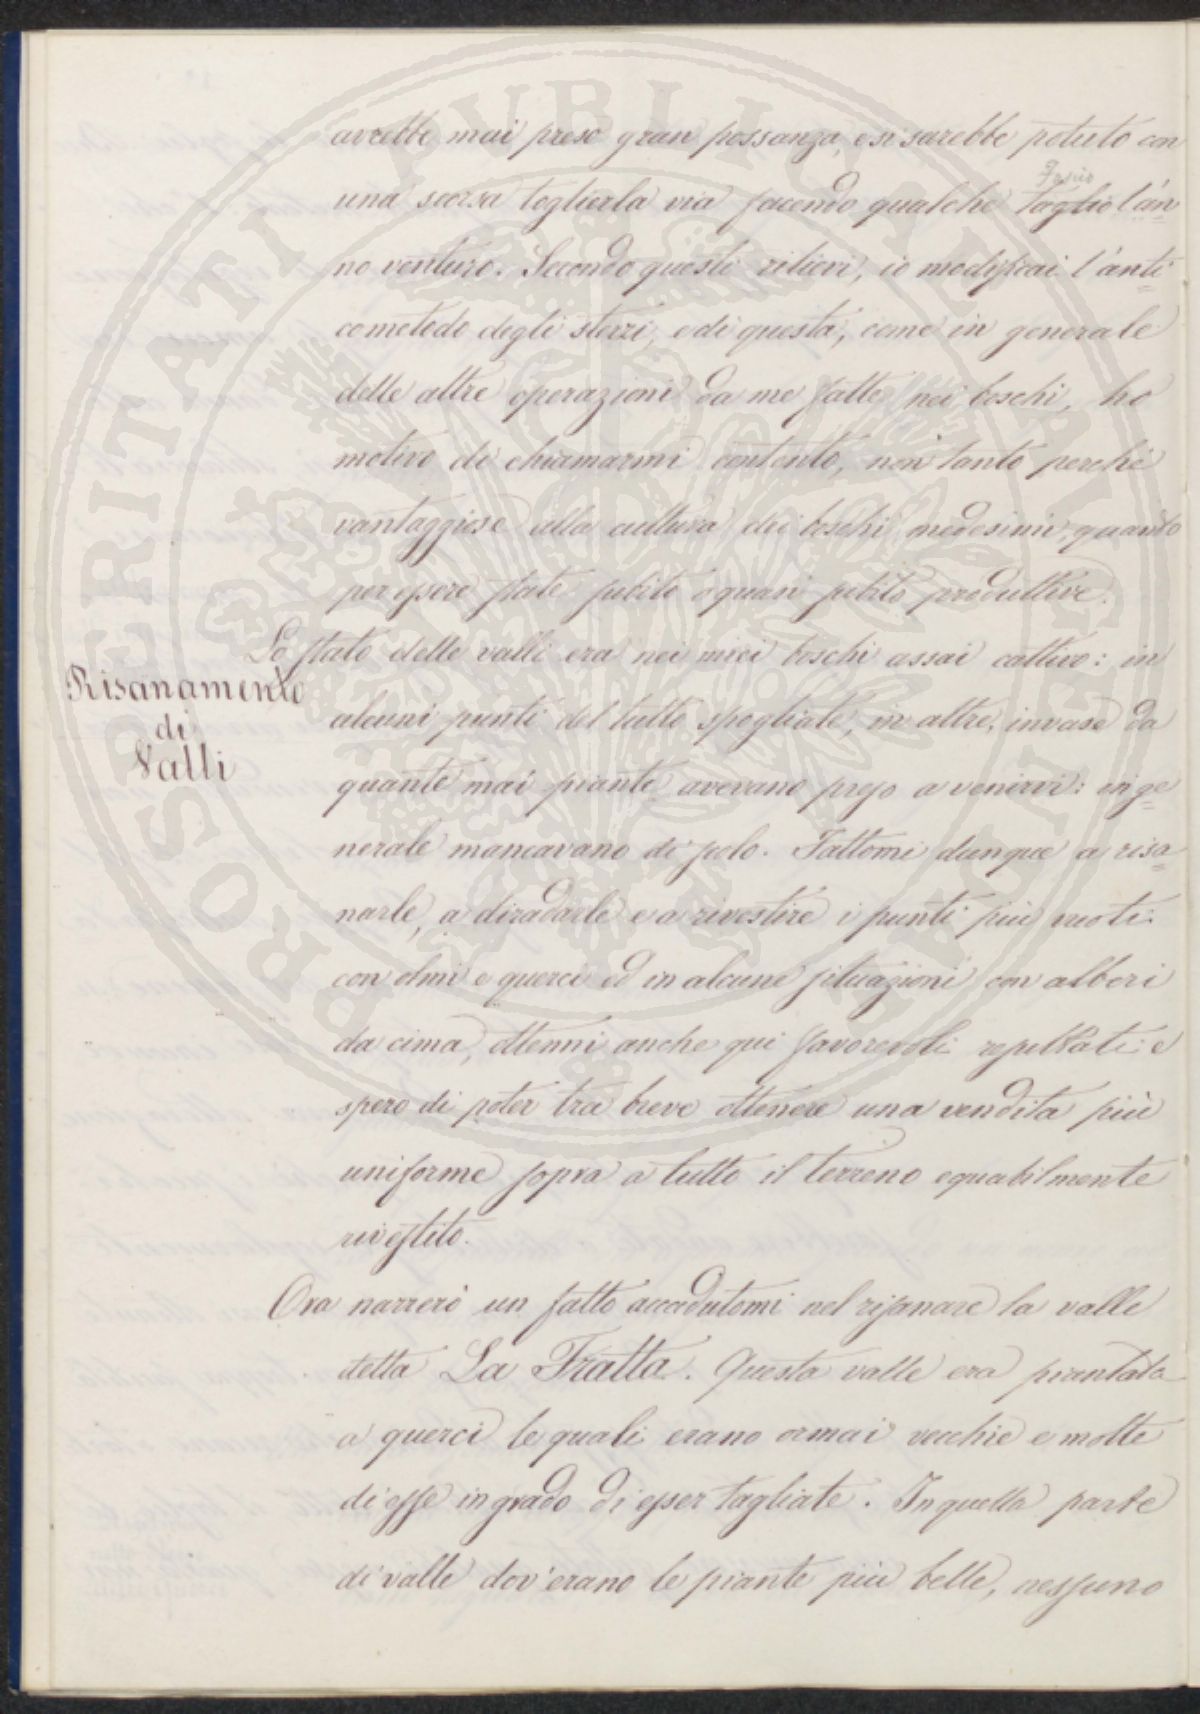 avrebbe mai preso gran possanza, e si sarebbe potuto con
una scorsa toglierla via facendo qualche taglio l'an
no venturo. Secondo questi rilievi, io modificai l'anti
co metodo degli sterzi, e di questa, come in generale
delle altre operazioni da me fatte nei boschi, ho
motivo di chiamarmi contento, non tanto perchè
vantaggiose alla cultura dei boschi medesimi, quanto
per essere state subito o quasi subito produttive.
Lo stato delle valli era nei miei boschi assai cattivo: in
Risanamento
di
Valli
alcuni punti del tutto spogliate, in altre, invase da
quante mai piante avevano preso a venirvi: in ge=
nerale mancavano di polo. Fattomi dunque a risa=
narle, a diradarle e a rivestire i punti più vuoti
con olmi e querci ed in alcune situazioni con alberi
da cima, ottenni anche qui favorevoli resultati: e
spero di poter tra breve ottenere una vendita più
uniforme sopra a tutto il terreno equabilmente
rivestito.
Ora narrerò un fatto accadutomi nel risanare la valle
detta La Fratta. Questa valle era piantata
a querci le quali erano ormai vecchie e molte
di esse in grado di esser tagliate. In quella parte
di valle dov'erano le piante più belle, nessuno
PROSPERITATI PUBLICAE AUGENDAE